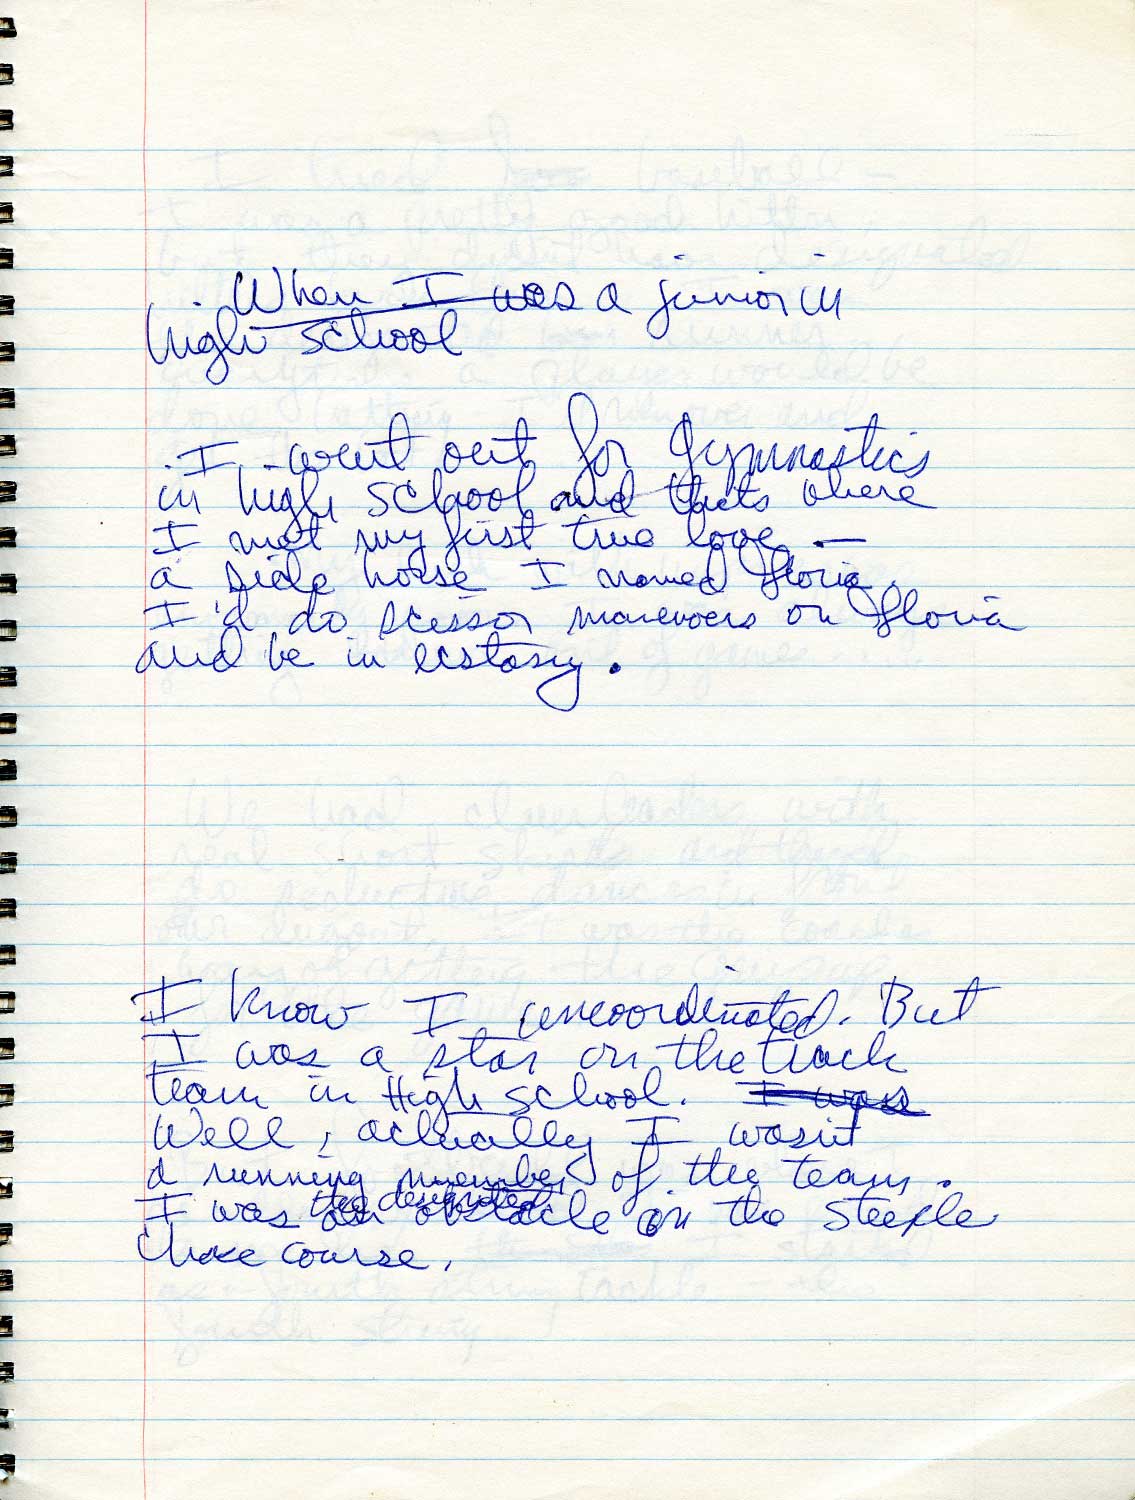 When I was a junior in
high school
I went out for Gymnastics
in high school and thats where
I met my first true love —
a side horse I named Gloria.
I'd do scissor manevoers on Gloria
and be in ecstasy.
I know I uncoordinated. But
I was a star on the track
team in High school. I was
Well, actually I wasn't
a running member of the team.
I was the designated obstacle on the steeple
chase course.